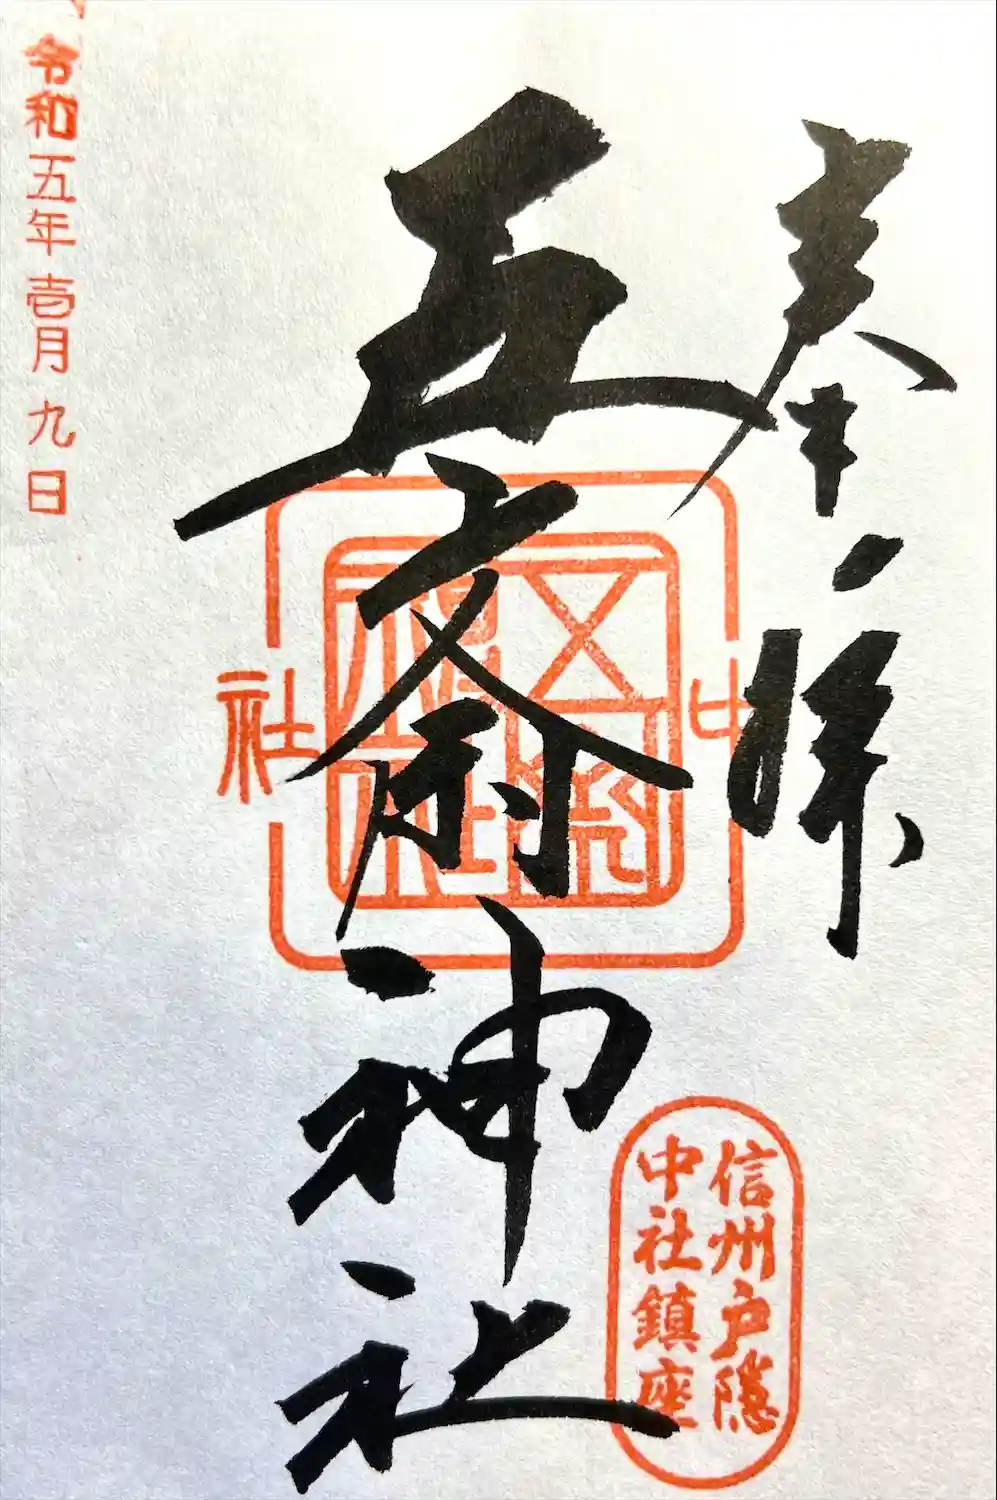 奉拝
中
信州戸隠
中社鎮座
五斎神社
社
令和五年壱月九日